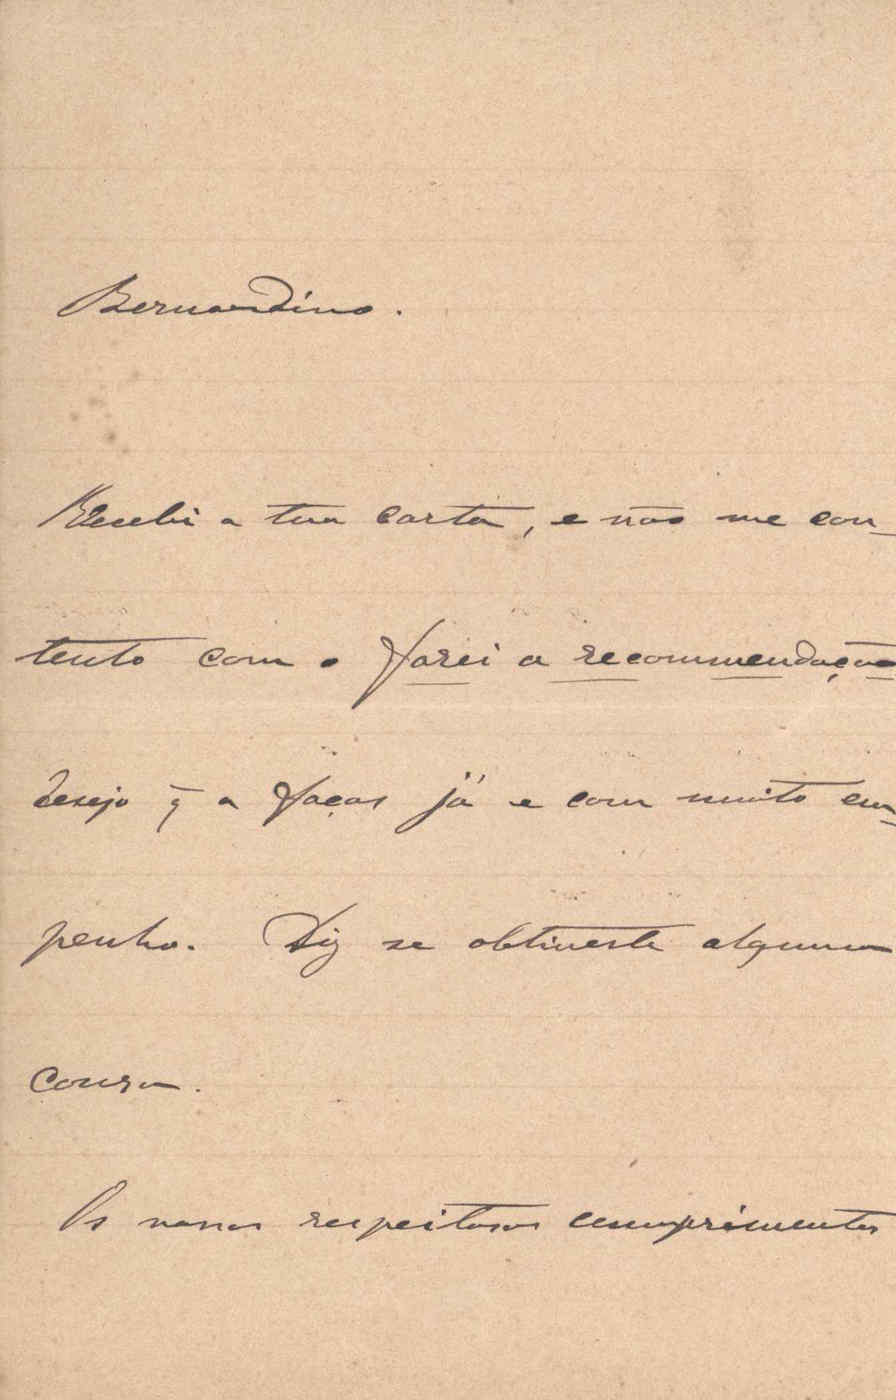 Bernardino.
Recebi a tua carta, e não me con-
tento com o farei a recommendação
desejo q̃ a faças já e com muito em-
penho. Diz se obtiveste alguma
cousa.
Os nossos respeitosos cumprimentos